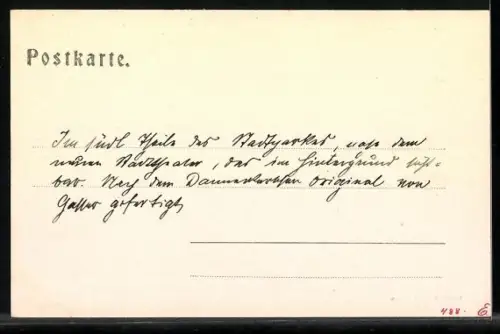 Postkarte.
Im südl Theile des Stadtparkes, nahe dem
neuen Stadttheater, das im Hintergrund sicht-
bar. Nach dem Danneckerschen Original von
Gasser gefertigt
488. E